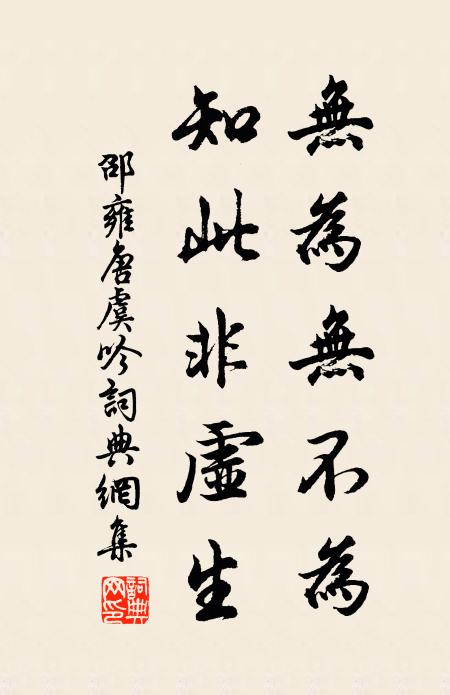 無為無不為
知此非虛生
邵雍唐虞吟詞典網集
詞典網印